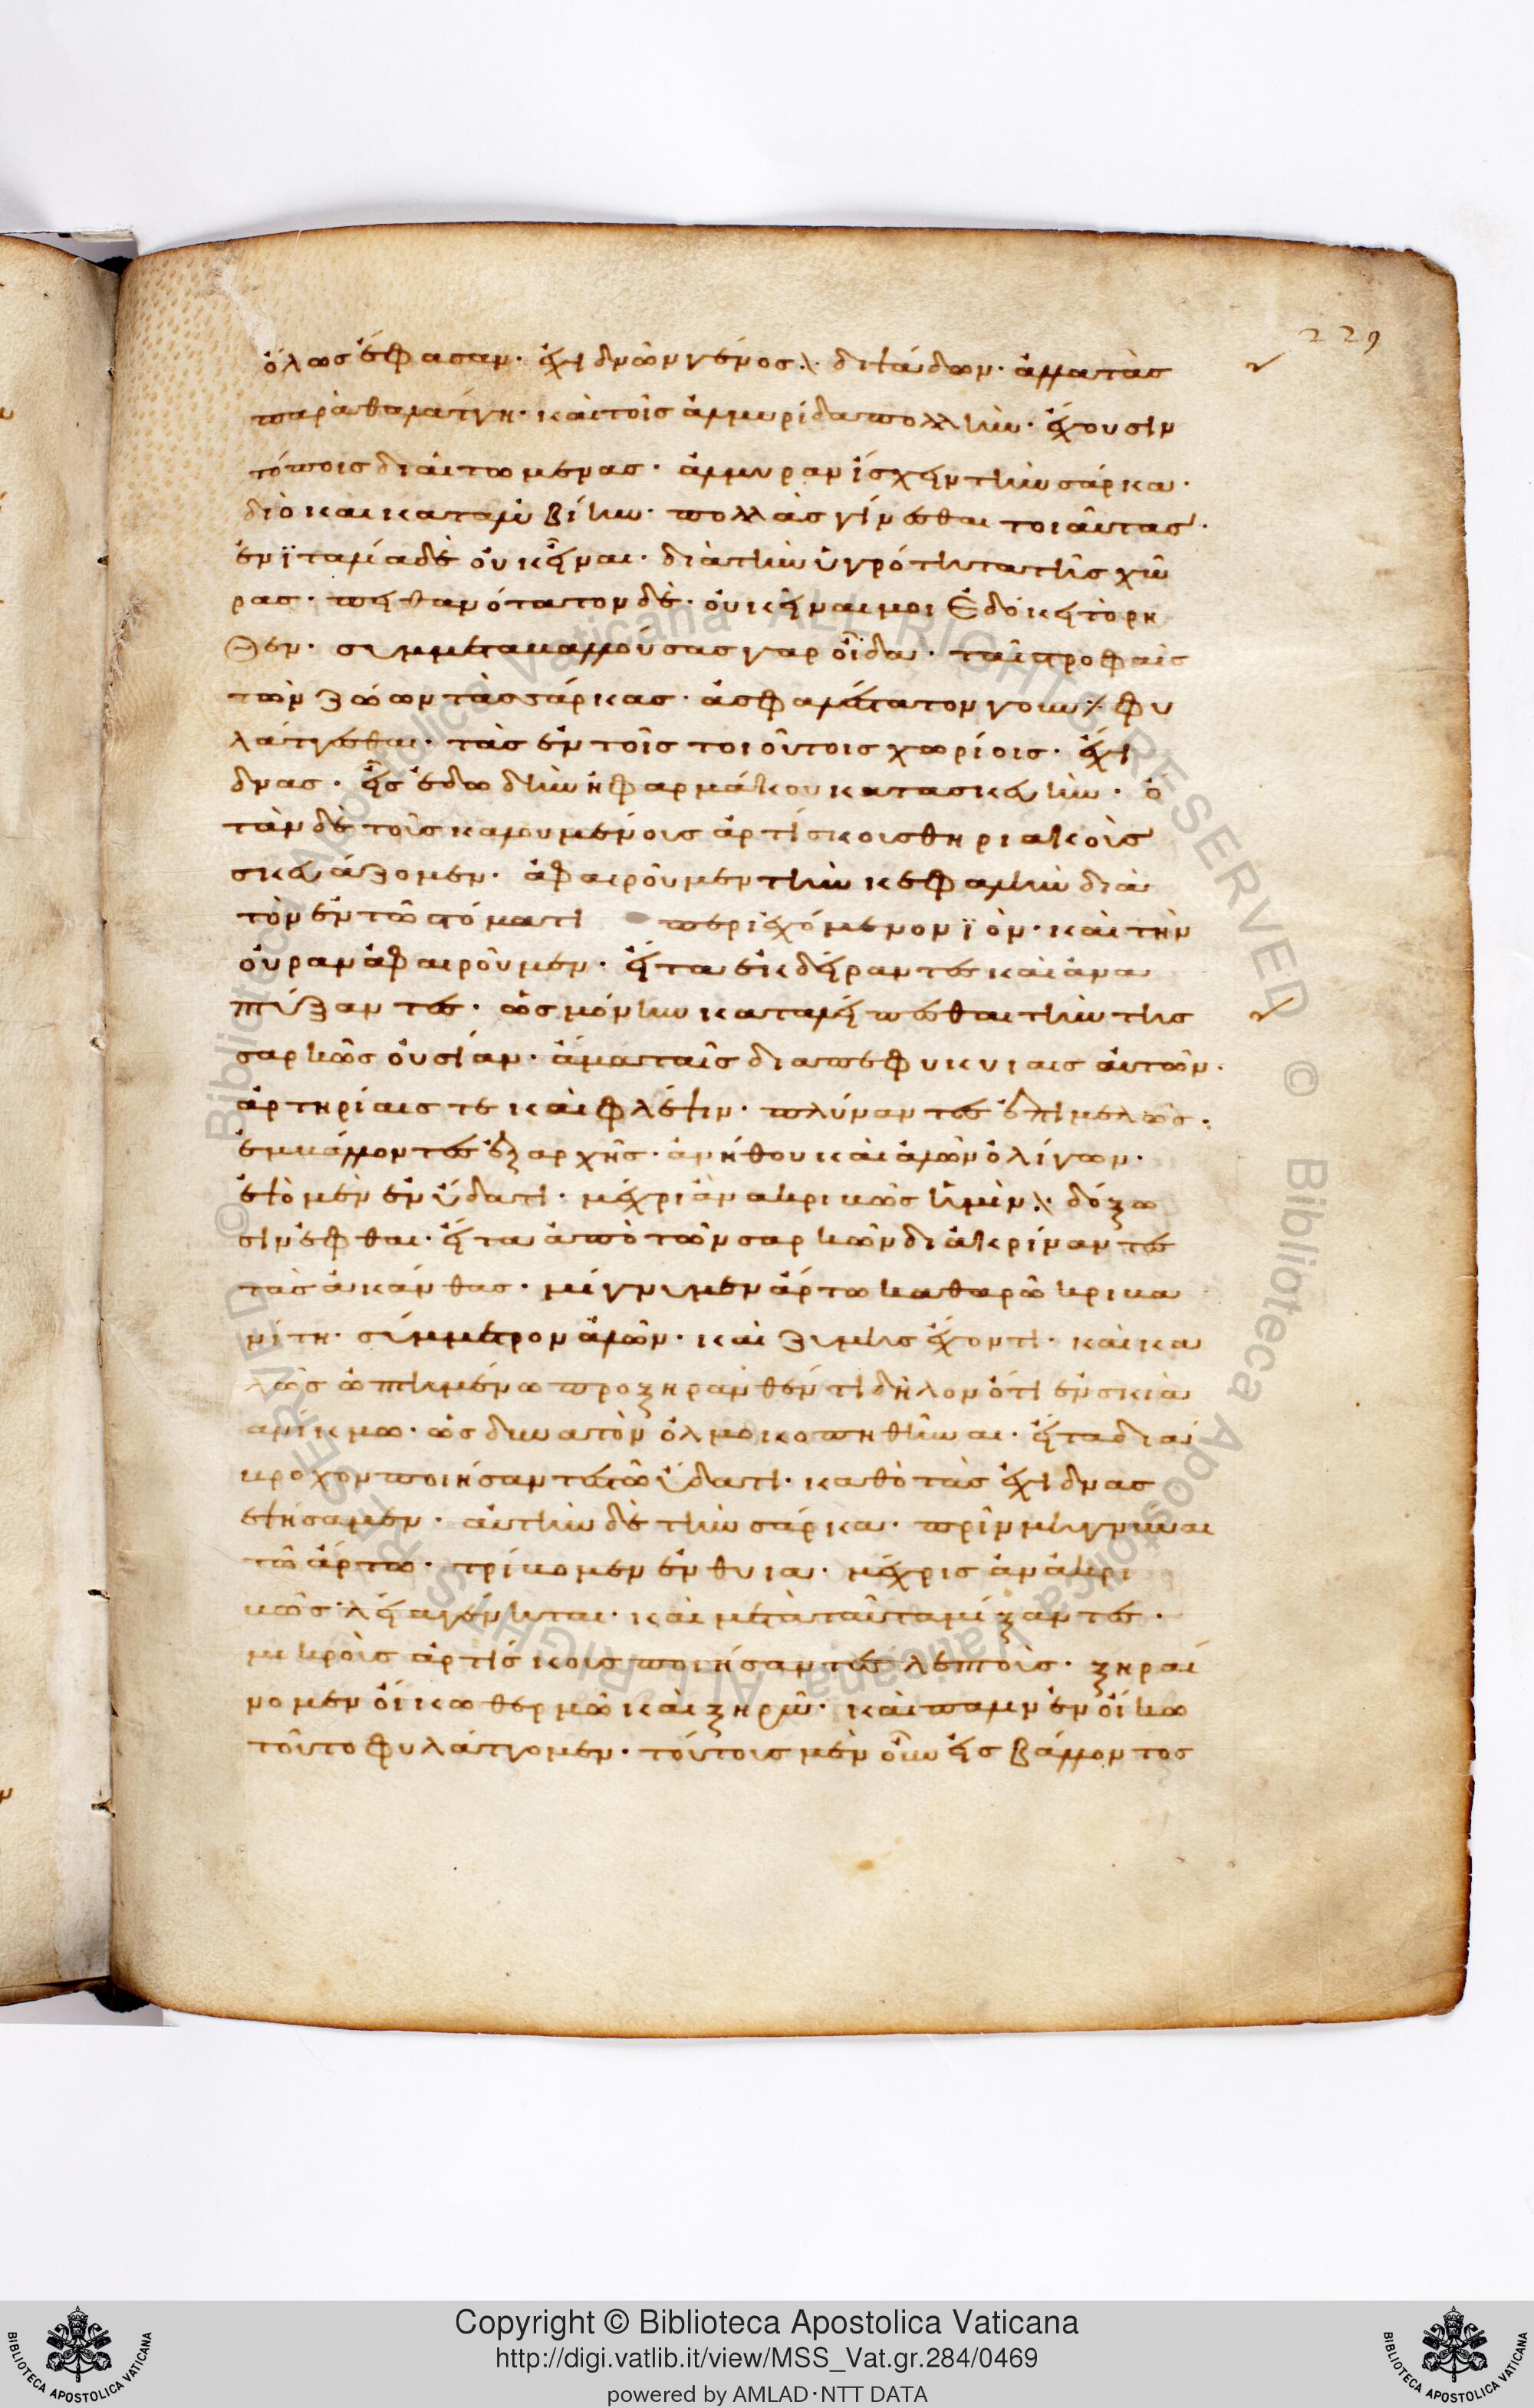 229
ὅλως ἔφασαν· ἐχιδνῶν γένος· διψάδων· ἀλλὰ τὰς
παρὰ θαλάττη· καὶ τοῖς ἁλμυρίδα πολλὴν· ἔχουσιν
τόποις διαιτωμένας· ἁλμυρὰν ἴσχειν τὴν σάρκα·
διὸ καὶ κατα λιβύην· πολλὰς γίνεσθαι τοιαύτας·
ἐν ϊταλία δὲ οὐκ εἶναι· διὰ τὴν ὑγρότητα τῆς χώ
ρας· πιθανώτατον δὲ· οὐκ εἶναι μοι ἐδόκει τὸ ρη
θὲν· συμμεταβαλλούσας γὰρ οἶδα· ταῖς τροφαῖς
τῶν ζώων τὰς σάρκας· ἀσφαλέστατον γοῦν φυ
λάττεσθαι· τὰς ἐν τοῖς τοιούτοις χωρίοις· ἐχί
δνας· εἰς ἐδωδὴν ἢ φαρμάκου κατασκευὴν· ὅ
τὰν δὲ τοῖς καλουμένοις ἀρτίσκοις θηριακοῖς
σκευάζομεν· ἀφαιροῦμεν τὴν κεφαλὴν διὰ
τὸν ἐν τῶ στόματι περιεχόμενον ϊὸν· καὶ τὴν
οὐρὰν ἀφαιροῦμεν· εἶτα ἐκδείραντες καὶ ἀνα
πτύξαντες· ὡς μόνην καταλείπεσθαι τὴν τῆς
σαρκὸς οὐσίαν· ἅμα ταῖς διαπεφυκυίαις αὐτῶν·
ἀρτηρίαις τε καὶ φλέψιν· πλύναντες ἐπιμελῶς·
ἐμβάλλοντες ἐξαρχῆς· ἀνήθου καὶ ἁλῶν ὀλίγων·
ἕψομεν ἐν ὕδατι· μέχρι ἂν ακριβῶς ἡμῖν· δόξω
σιν ἑφθαι· εἶτα ἀπὸ τῶν σαρκῶν διακρίναντες
τὰς ἀκάνθας· μίγνυμεν ἄρτω καθαρῶ κριβα
νίτη· σύμμετρον ἁλῶν· καὶ ζύμης ἔχοντι· καὶ κα
λῶς ὠπτημένω προξηρανθέντι δηλονότι ἐν σκιὰ
ανίκμω· ὡς δυνατὸν ὅλμοι κοπηθῆναι· εἶτα διά
βροχον ποιήσαντες τῶ ὕδατι· καθὸ τὰς ἐχίδνας
εψήσαμεν· αὐτὴν δὲ τὴν σάρκα· πρὶν μιγνύναι
τῶ ἄρτω· τρίβομεν ἐν θυία· μέχρις ἂν ἀκρι
βῶς λεία γένηται· καὶ μετὰ ταῦτα μίξαντες·
μικροὺς ἀρτίσκους ποιήσαντες λεπτοὺς· ξηραί
νομεν οἴκω θερμῶ καὶ ξηρῶ· καὶ πάλιν ἐν οἴκω
τοῦτο φυλάττομεν· τούτοις μὲν οὖν εἰς βάλλοντος
Copyright © Biblioteca Apostolica Vaticana
http://digi.vatlib.it/view/MSS_Vat.gr.284/0469
powered by AMLAD·NTT DATA